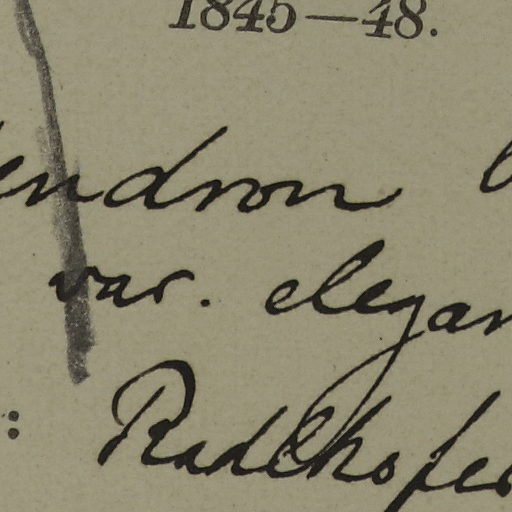 1845—48.
endron
var. elegan
: Radlkofer